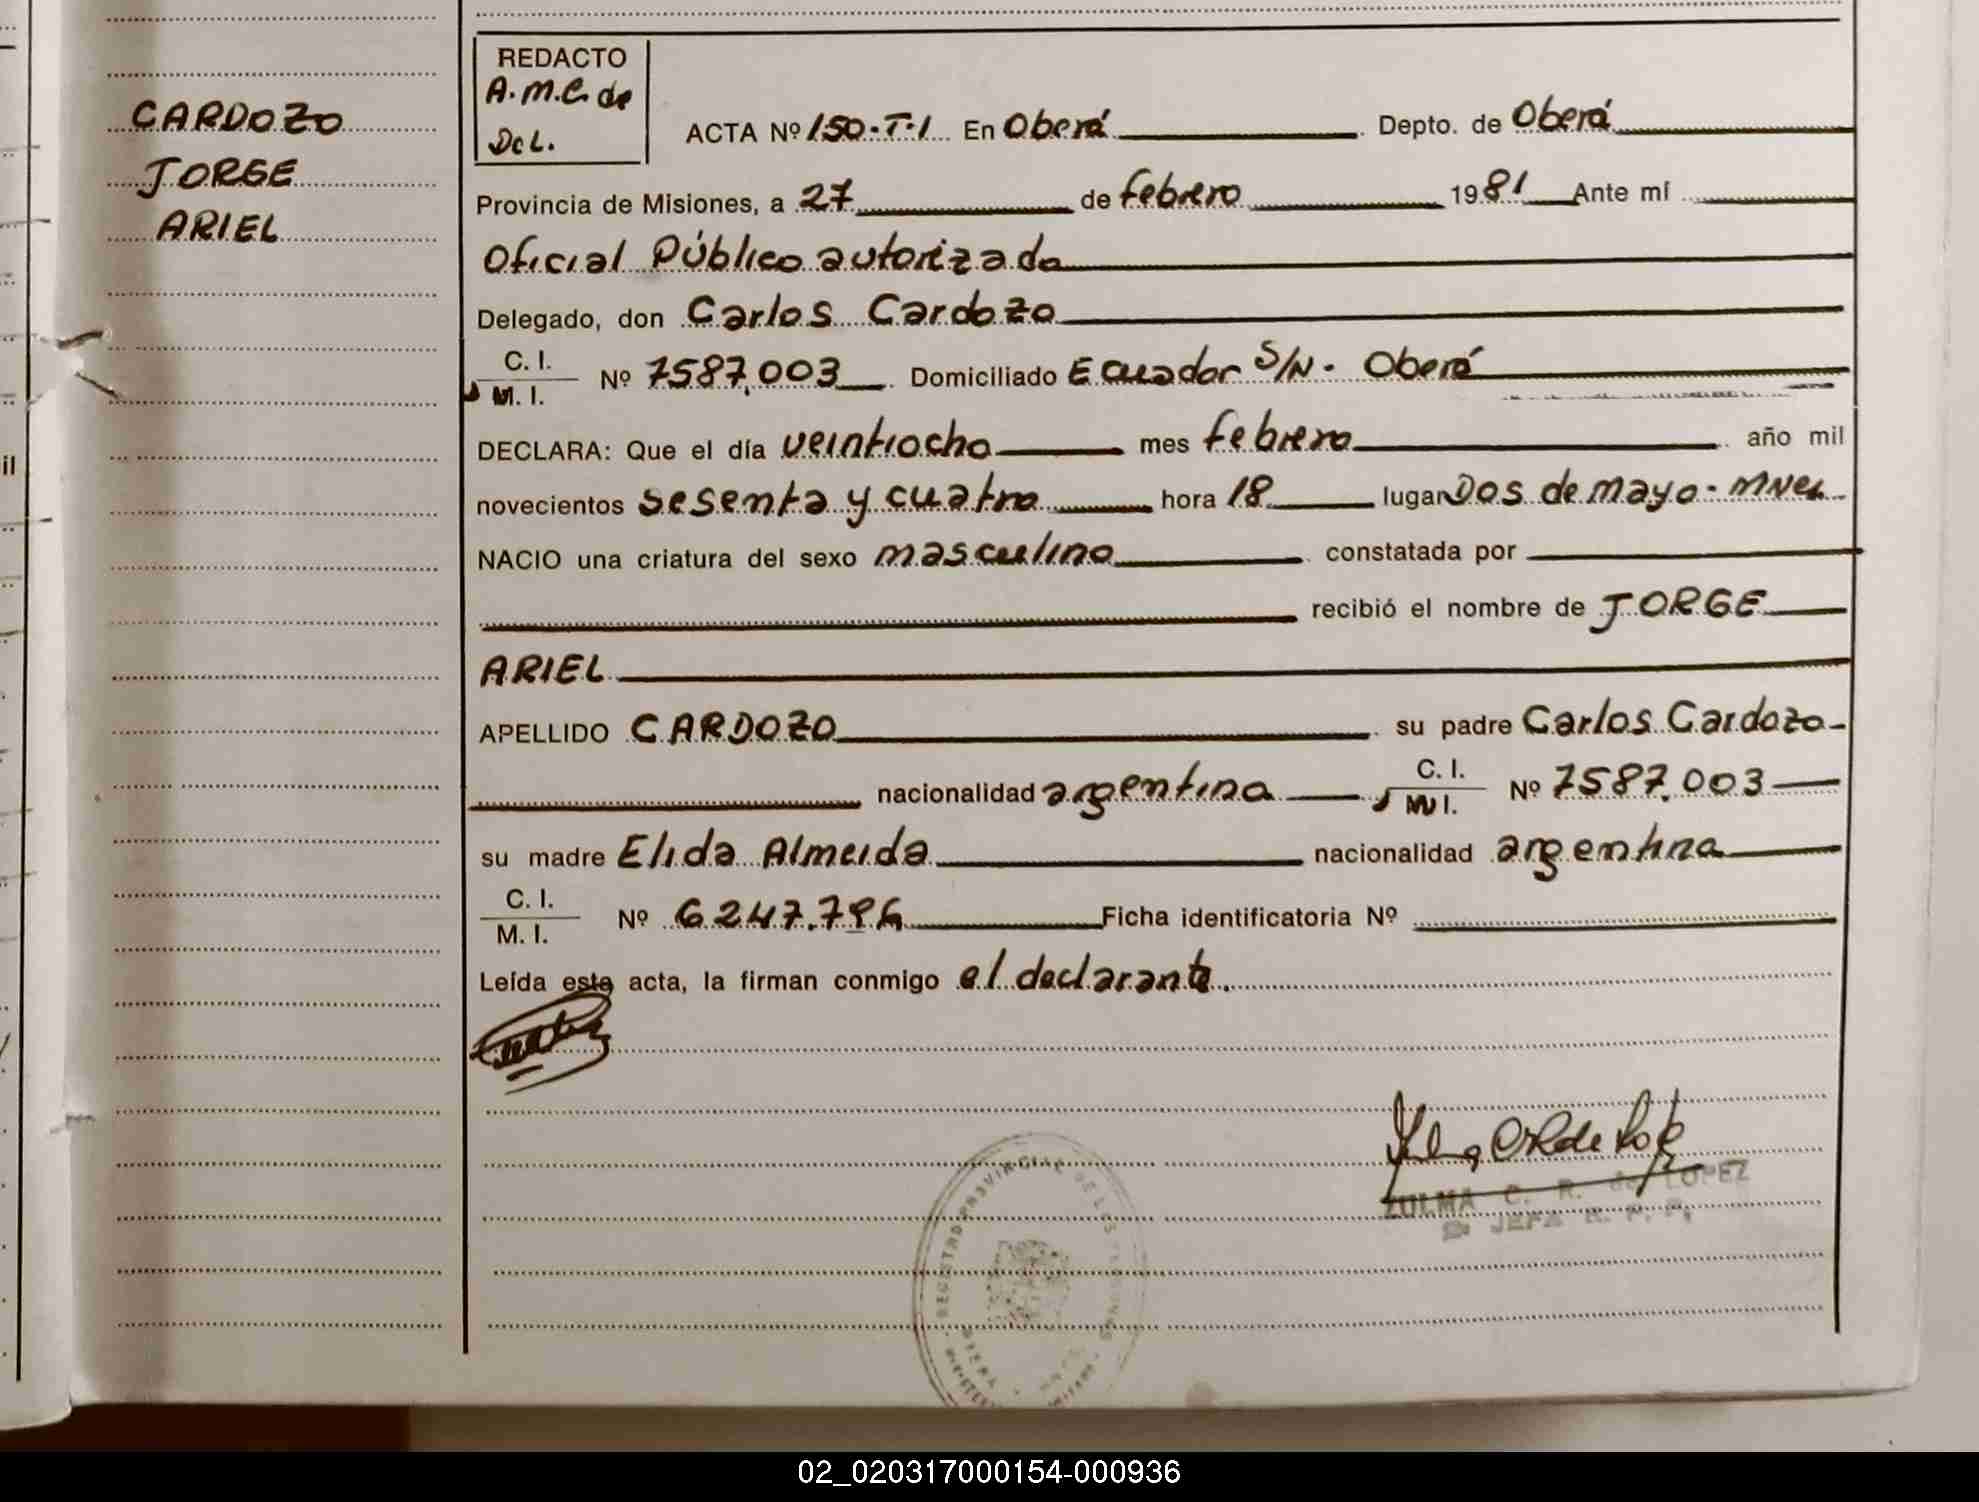 CARDOZO
JORGE
ARIEL
REDACTO
A.M.C. de
DcL.
ACTA Nº 150-T-1 En Oberá Depto. de Oberá
Provincia de Misiones, a 27 de febrero 1981 Ante mí
Oficial Público autorizado
Delegado, don Carlos Cardozo
C. I.
M. I.
Nº 7587.003 Domiciliado Ecuador S/N. Oberá
DECLARA: Que el día veintiocho mes febrero año mil
novecientos sesenta y cuatro hora 18 lugar Dos de mayo - Mnes
NACIO una criatura del sexo masculino constatada por
recibió el nombre de JORGE
ARIEL
APELLIDO CARDOZO su padre Carlos Cardozo
nacionalidad argentina C. I. M. I. Nº 7587.003
su madre Elida Almeida nacionalidad argentina
C. I.
M. I.
Nº 6247.794 Ficha identificatoria Nº
Leída este acta, la firman conmigo el declarante.
ZULMA C. R. de LOPEZ
JEFA R. P. P.
REGISTRO PROVINCIAL DE LAS PERSONAS
02_020317000154-000936